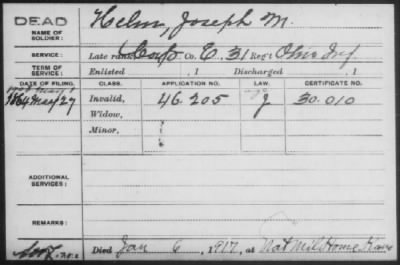 DEAD
NAME OF SOLDIER: Helm, Joseph M.
SERVICE: Late rank, Capt Co. C, 31 Reg't Ohio Inf.
TERM OF SERVICE: Enlisted , 1 Discharged , 1
DATE OF FILING. CLASS. APPLICATION NO. LAW. CERTIFICATE NO.
1864 May 27 Invalid, 46 205 J 30.010
Widow,
Minor,
ADDITIONAL SERVICES:
REMARKS:
Died Jan 6, 1917, at Nat Mil Home Kans